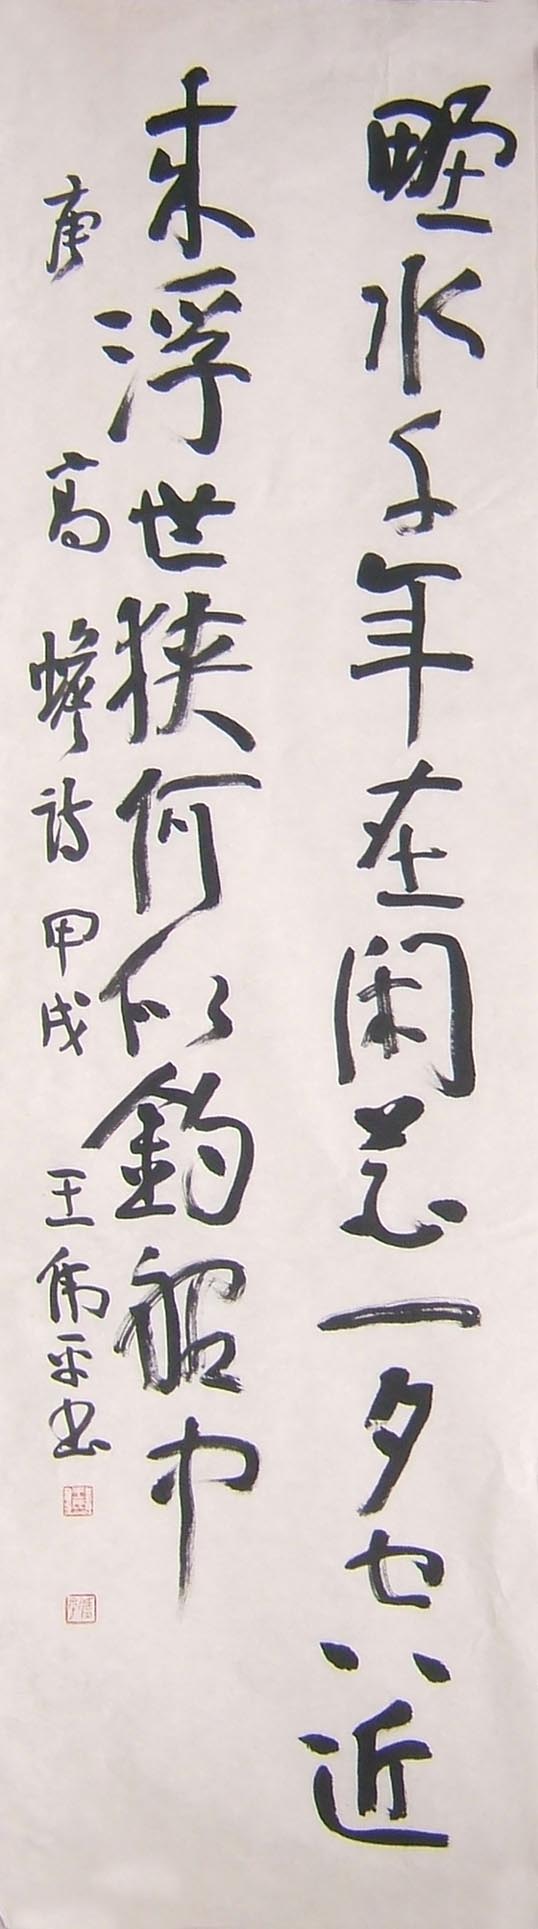 野水千年在闲花一夕空近
来浮世狭何似釣船中
唐高蟾诗甲戌王伟平书